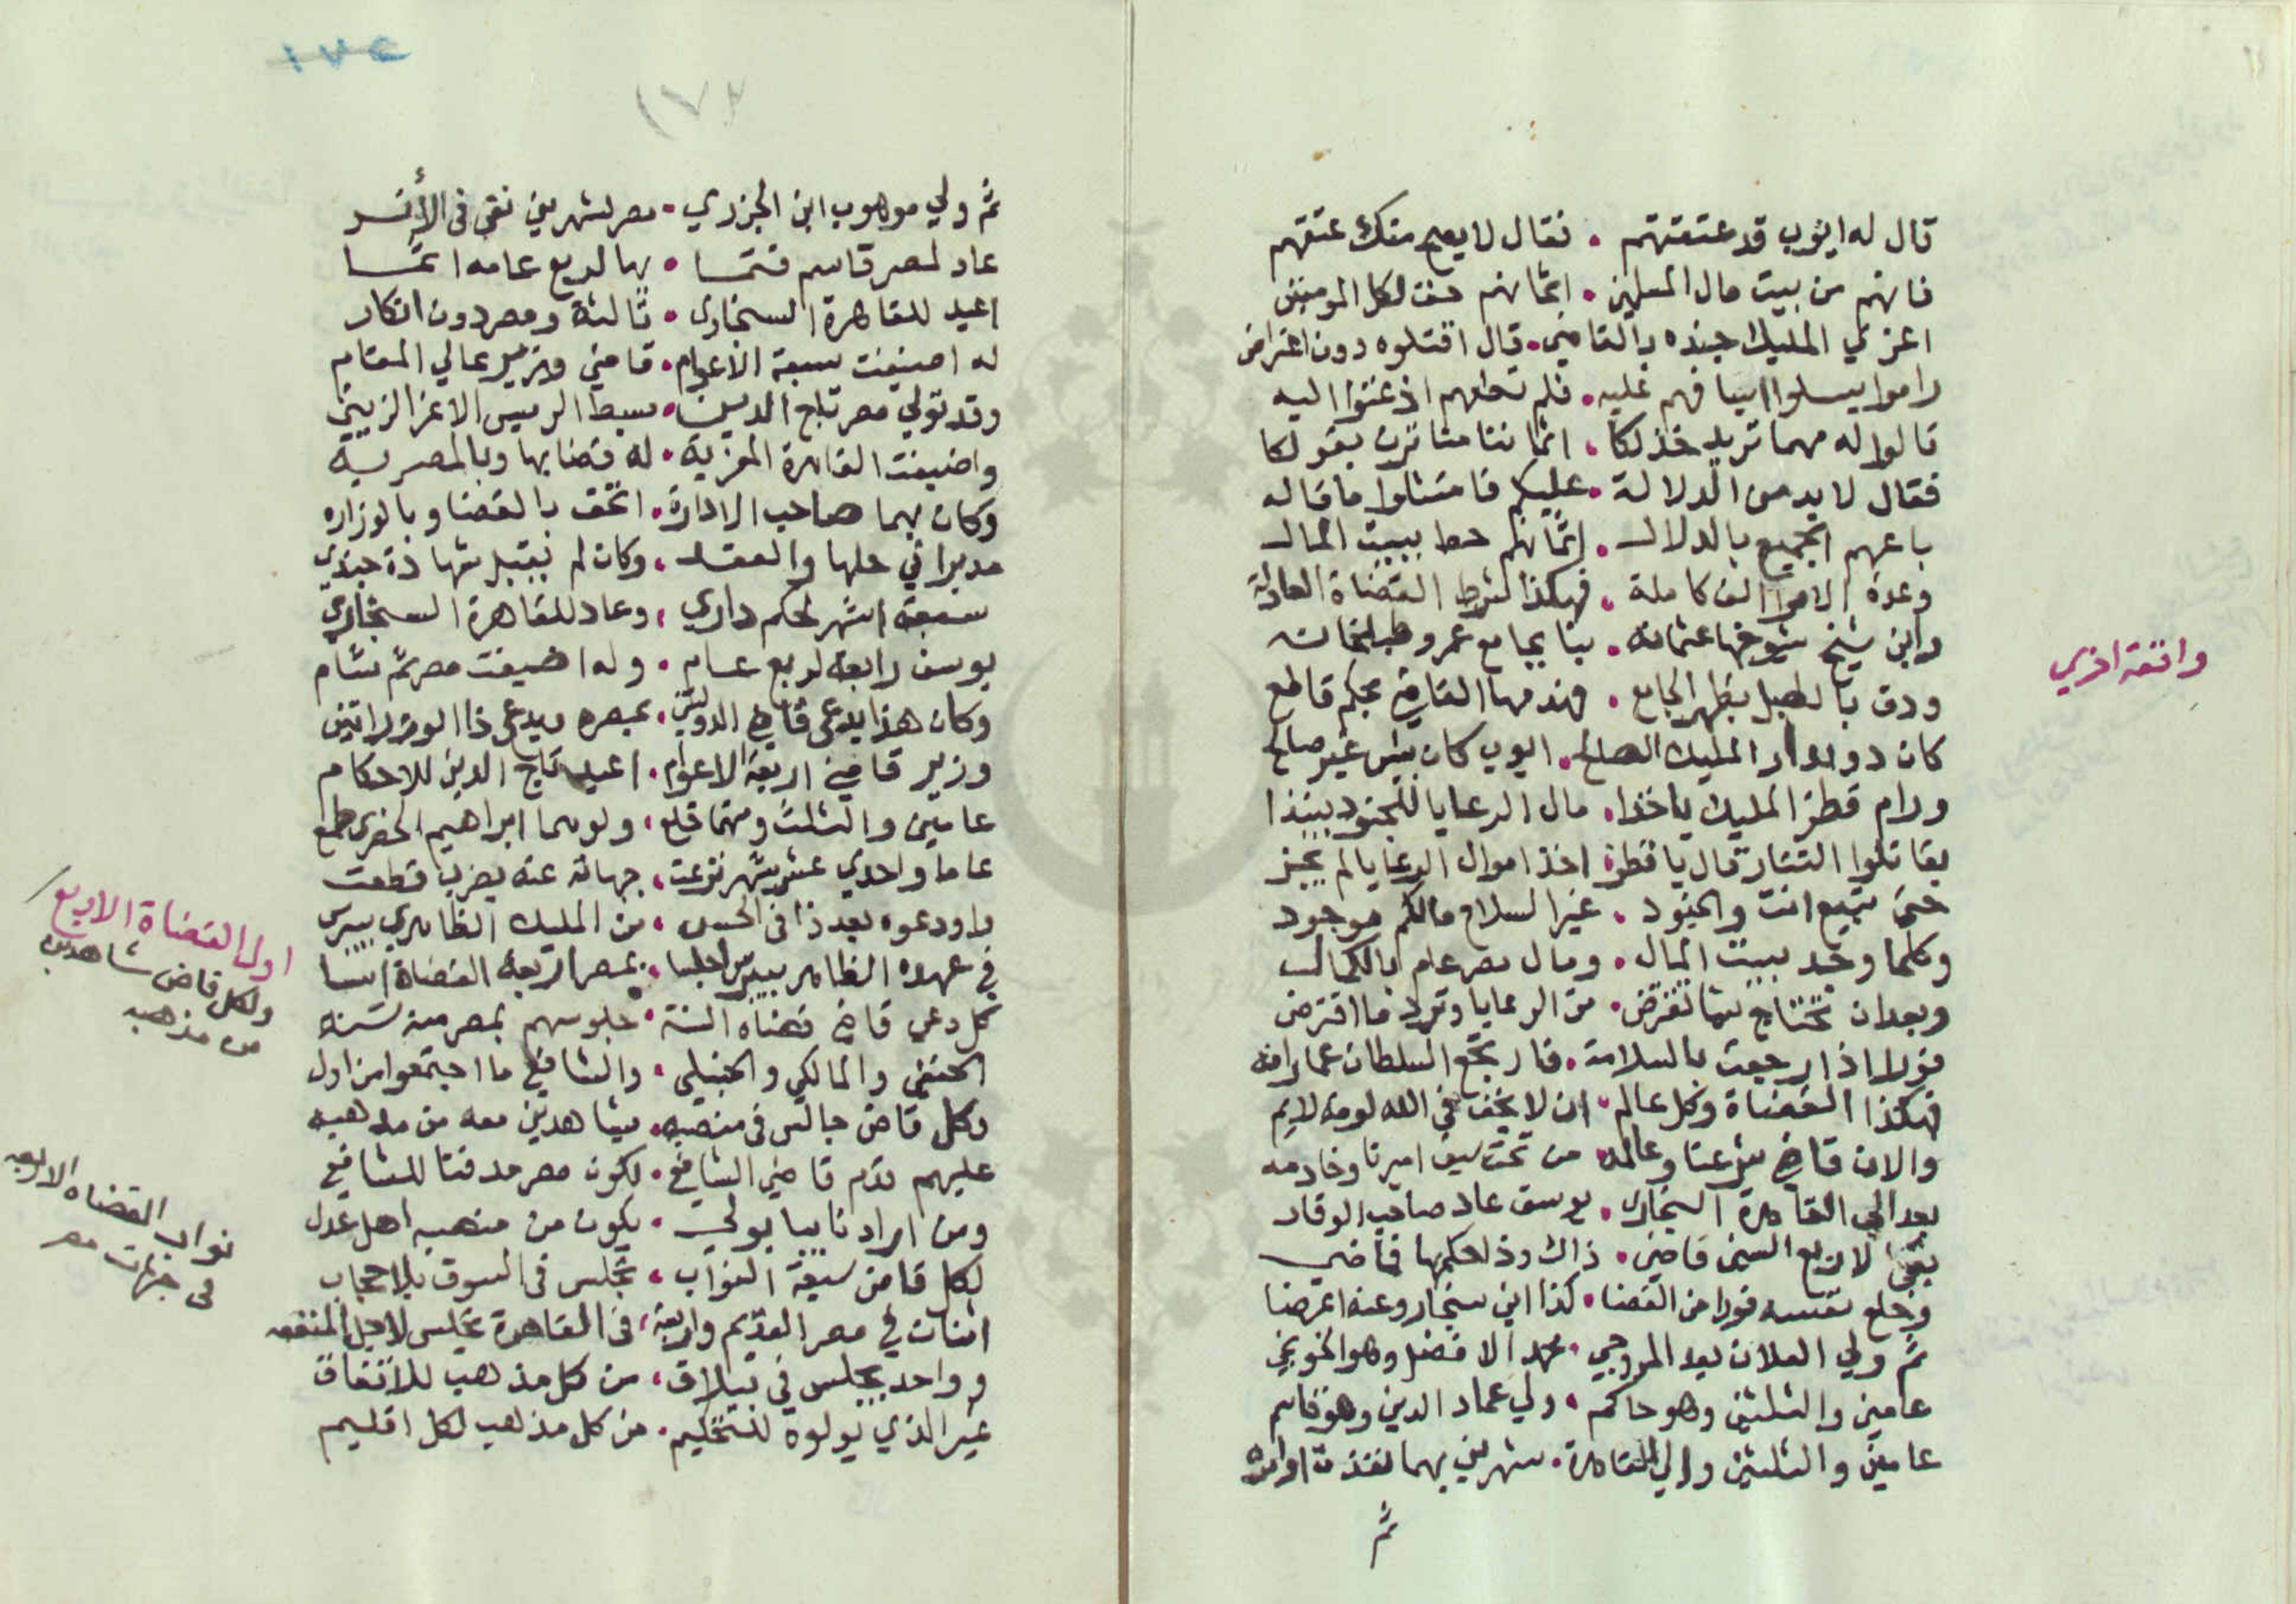 قال له ايوب قد عتقتهم . فقال لا يصح منك عتقهم
فانهم من بيت مال المسلمين . اثمانهم حق لكل المومنين
اغري المليك جنده بالقاضي . قال اقتلوه دون اعتراض
راموا يسلوا اسيافهم عليه . فلم اذعنوا اليه
قالوا له مهما تريد خذ لكا . اثماننا بقولكا
فقال لا بد من الدلالة . عليكم فامتثلوا ما قاله
باعهم الجميع بالدلال . اثمانهم حط ببيت المال
وعدة الامرا الف كاملة . فهكذا شرط القضاة العادلة
وابن شيخ شيوخها عثمانه . بنا بجامع عمرو طبلخانه
ودق بالطبل بظهر الجامع . فهدمها القاضي بحكم قاطع
كان دوادار المليك الصالح . ايوب كان بيس غير صالح
ورام قطز المليك ياخذا . مال الرعايا للجنود ينفذا
يقاتلوا التتار قال يا قطز . اخذ اموال الرعايا لم يجز
حتى تبيع انت والجنود . غير السلاح مالكم موجود
وكلما وجد ببيت المال . ومال مصر عام بالكمال
وبعد ان تحتاج شيا تقترض . من الرعايا وترد ما اقترض
فورا اذا رجعت بالسلامة . فارتجع السلطان عما رامه
فهكذا القضاة وكل عالم . ان لا يخف في الله لومة لايم
والان قاضي شرعنا وعالمه . من تحت سيف اميرنا وخادمه
بعد الي القاهرة السنجاري . يوسف عاد صاحب الوقار
بقي لاربع السنين قاضي . ذاك وذا بحكمها قاضي
وخلع نفسه فورا من القضا . كذا ابن سنجار وعنه اعرضا
ثم ولي العلان بعد المروجي . محمد الافضل وهو الخونجي
عامين والثلثين وهو حاكم . ولي عماد الدين وهو قاسم
عامين والثلثين والي القاهرة . شهرين بهما نفذت اوامره
ثم
واقعة اخري
١٧٢
ثم ولي موهوب ابن الجزري . مصر لشهرين نقي في الأثر
عاد لمصر قاسم قتما . بها لربع عامه اتما
اعيد للقاهرة السنجاري . ثالثة ومصر دون انكار
له اضيفت سبعة الاعوام . قاضي وزير عالي المقام
وقد تولي مصر تاج الدين . سبط الرييس الاعز الزيني
واضيفت القاهرة المعزية . له قضا بها وبالمصرية
وكان بهما صاحب الادارة . اتحف بالقضا وبالوزاره
مدبرا في حلها والعقد . وكان لم يقبل شهادة جندي
سبعة اشهر لحكم داري . وعاد للقاهرة السنجاري
يوسف رابعة لربع عام . وله اضيفت مصر ثم شام
وكان هذا يدعي قاضي الدولتين . بمصره ويدعي ذا الوزراتين
وزير قاضي اربعة الاعوام . اعيد تاج الدين للاحكام
عامين والثلث ومنهما قلع . ولوسما ابراهيم الخضري طمع
عاما واحدي عشر شهر نزعت . جهاته عنه بضرب قطعت
واودعوه بعد ذا في الحبس . من المليك الظاهري بيبرس
في عهده الظاهر بيبرس اجلسا . بمصر اربعة القضاة اسسا
كل دعي قاضي قضاه السنة . جلوسهم بمصر منه سنه
الحنفي والمالكي والحنبلي . والشافعي ما اجتمعوا من اول
وكل قاض جالس في منصبه . شاهدين معه من مذهبه
عليهم قدم قاضي الشافعي . لكون مصر مدفنا للشافعي
ومن اراد نايبا يولي . يكون من مذهبه اهل عدل
لكل قاض سبعة النواب . تجلس في السوق بلا حجاب
اثنان في مصر القديم واربعة . في القاهرة تجلس لاجل المنفعه
وواحد يجلس في بيلاق . من كل مذهب للاتفاق
غير الذي يولوه للتحكيم . من كل مذهب لكل اقليم
اول القضاة الاربع
ولكل قاض شاهدين
من مذهبه
نواب القضاه الاربعه
في جهات مصر